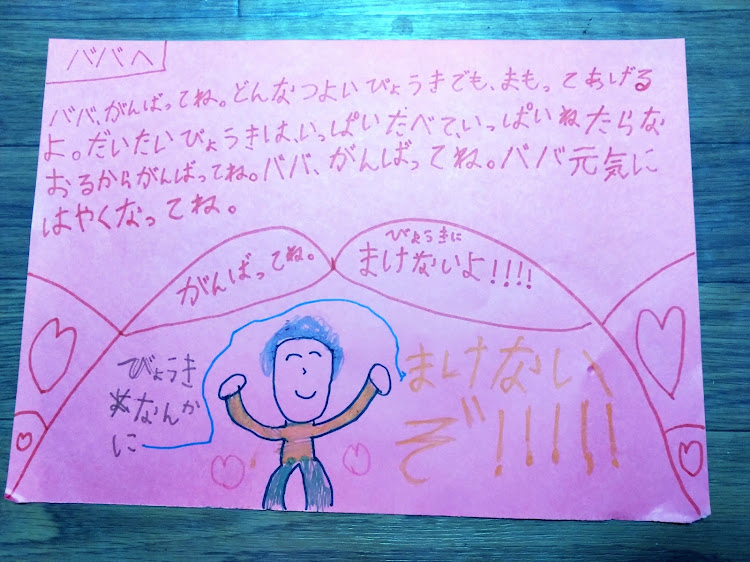 ババへ
ババ、がんばってね。どんなつよいびょうきでも、まもってあげる
よ。だいたいびょうきは、いっぱいたべて、いっぱいねたらな
おるからがんばってね。ババ、がんばってね。ババ元気に
はやくなってね。
がんばってね。
びょうきに
まけないよ!!!!
びょうき
なんか
に
まけない
ぞ!!!!!